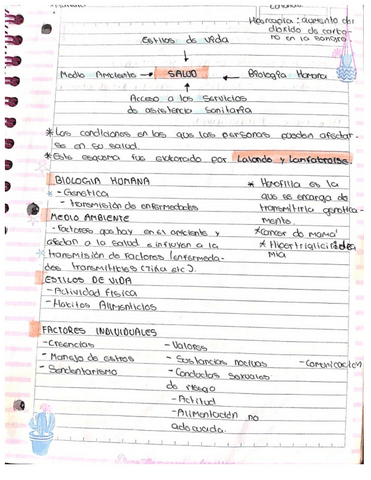 Hipercapnia: aumento del
dioxido de carbo-
no en la sangre
Estilos de vida
Medio Ambiente → SALUD ← Biologia Humana
Acceso a los servicios
de asistencia sanitaria
* Las condiciones en las que las personas pueden afectar-
se en su salud.
* Este esquema fue elaborado por Lalonde y
BIOLOGIA HUMANA
- Genetica
- Transmisión de enfermedades
* Hemofilia es la
que se encarga de
transmitirla genetica-
mente.
* Cancer de mama
* Hipertrigliciridemia
MEDIO AMBIENTE
- Factores que hay en el ambiente y
afectan a la salud e influyen a la
transmisión de factores (enfermeda-
des transmitibles (tiña etc).
ESTILOS DE VIDA
- Actividad fisica
- Habitos Alimenticios
FACTORES INDIVIDUALES
- Creencias
- Manejo de estres
- Sendentarismo
- Valores
- Sustancias nocivas
- Conductas sexuales
de riesgo
- Actitud
- Alimentación no
adecuada.
- Comunicación